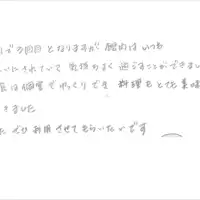 回目となりますが 館内はいつも
いにされていて 気持ちよく 過ごすことができまし
は個室でゆっくりでき 料理もとても美味
きました
ぜひ利用させてもらいたいです